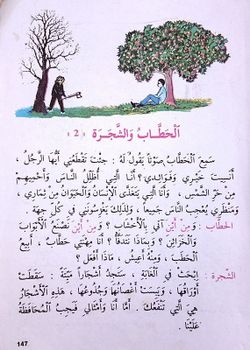 اَلْحَطَّابُ وَالشَّجَرَةُ « 2 »
سَمِعَ الْحَطَّابُ صَوْتاً يَقُولُ لَهُ : جِئْتَ تَقْطَعُنِي أَيُّهَا الرَّجُلُ ،
أَنَسِيتَ خَيْرِي وَفَوَائِدِي ؟ أَنَا الَّتِي أُظَلِّلُ النَّاسَ وَأَحْمِيهِمْ
مِنْ حَرِّ الشَّمْسِ ، وَأَنَا الَّتِي يَتَغَذَّى الْإِنْسَانُ وَالْحَيَوَانُ مِنْ ثِمَارِي ،
وَمَنْظَرِي يُعْجِبُ النَّاسَ جَمِيعاً ، وَلِذَلِكَ يَغْرِسُونَنِي فِي كُلِّ جِهَةٍ .
الحطاب : وَمِنْ أَيْنَ آتِي بِالْأَخْشَابِ ؟ وَمِنْ أَيْنَ تُصْنَعُ الْأَبْوَابُ
وَالْخَزَائِنُ ؟ وَبِمَاذَا نَتَدَفَّأُ ؟ أَنَا مِهْنَتِي حَطَّابٌ ، أَبِيعُ
الْحَطَبَ ، وَمِنْهُ أَعِيشُ ، مَاذَا أَفْعَلُ ؟
الشجرة : اِبْحَثْ فِي الْغَابَةِ ، سَتَجِدُ أَشْجَاراً مَيِّتَةً : سَقَطَتْ
أَوْرَاقُهَا ، وَيَبِسَتْ أَغْصَانُهَا وَجُذُوعُهَا ، هَذِهِ الْأَشْجَارُ
هِيَ الَّتِي تَنْفَعُكَ . أَمَّا أَنَا وَأَمْثَالِي فَيَجِبُ الْمُحَافَظَةُ
عَلَيْنَا .
147